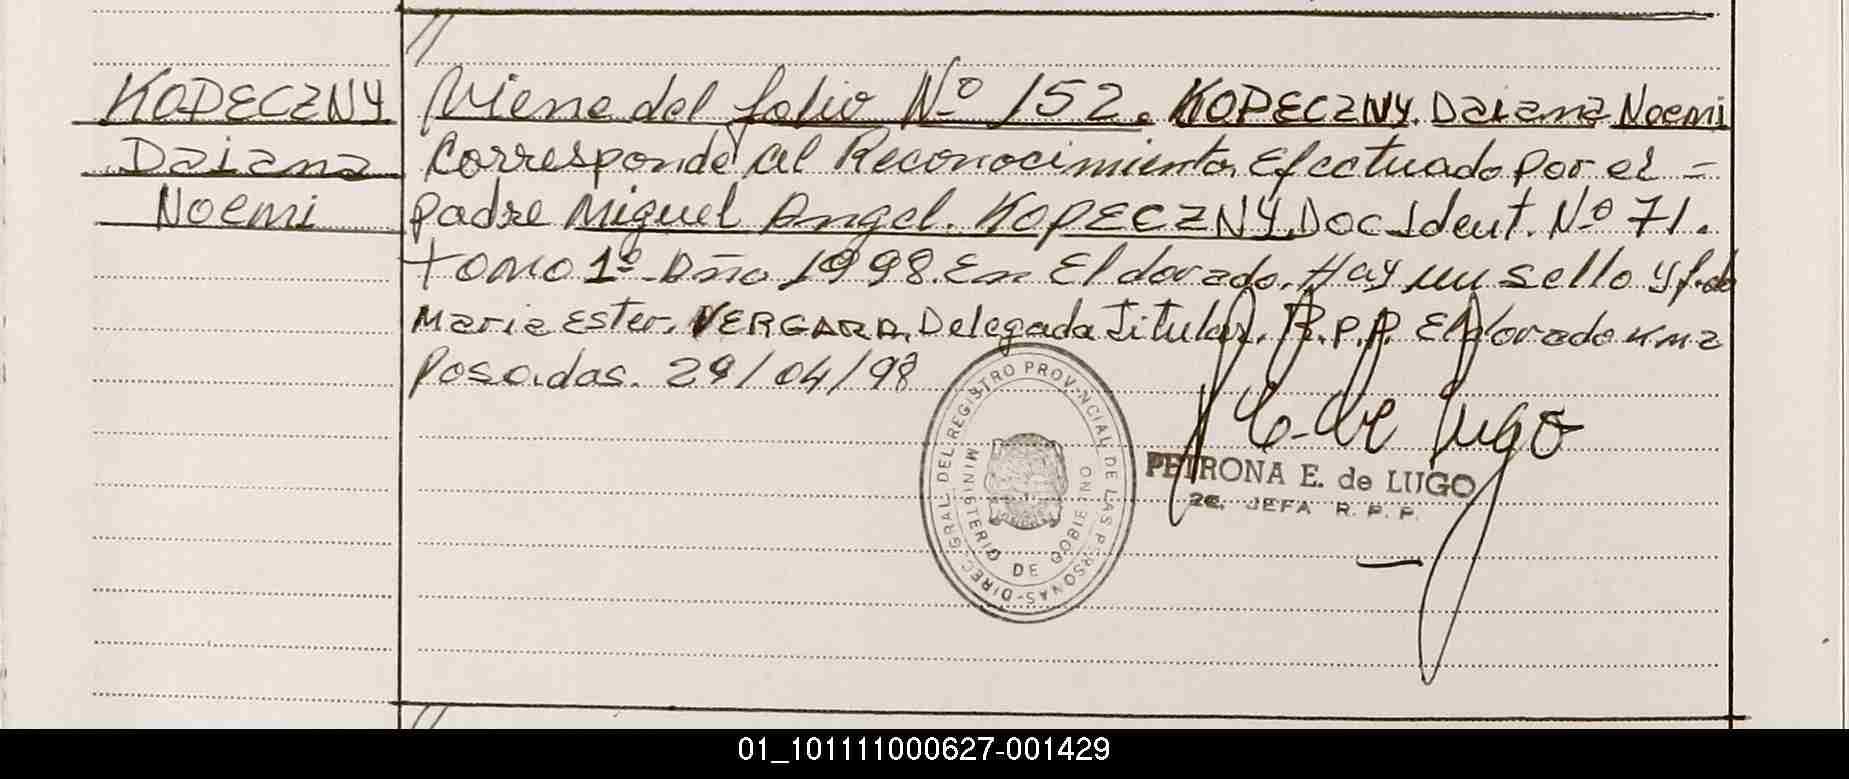 //
KOPECZNY
Daiana
Noemi
Viene del folio Nº 152. KOPECZNY. Daiana Noemi
Corresponde al Reconocimiento, Efectuado por el =
padre Miguel Angel. KOPECZNY, Doc Ident. Nº 71.
tomo 1º Año 1998. En Eldorado. Hay un sello y f.do
Maria Ester. VERGARA, Delegada Titular. R.P.P. Eldorado km 2
Posadas. 29/04/98
DIREC. GRAL. DEL REGISTRO PROVINCIAL DE LAS PERSONAS -
MINISTERIO DE GOBIERNO
de Lugo
PETRONA E. de LUGO
2a. JEFA R. P. P.
//
01_101111000627-001429